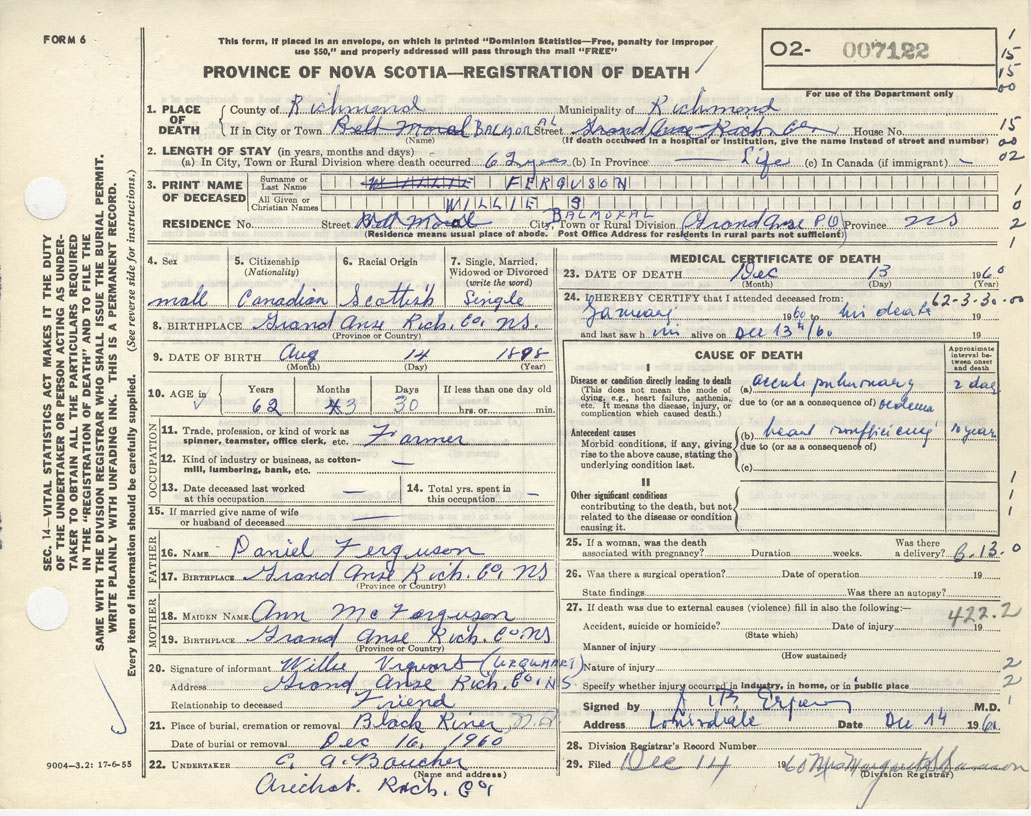 FORM 6
This form, if placed in an envelope, on which is printed "Dominion Statistics—Free, penalty for improper
use $50," and properly addressed will pass through the mail "FREE"
PROVINCE OF NOVA SCOTIA—REGISTRATION OF DEATH
O2- 007122
For use of the Department only
1
15
15
00
15
00
02
1
0
2
1
1. PLACE OF DEATH
County of Richmond Municipality of Richmond
If in City or Town Bell Moral BALMORAL Street Grand Anse Rich Co House No.
(Name) (If death occurred in a hospital or institution, give the name instead of street and number)
2. LENGTH OF STAY (in years, months and days)
(a) In City, Town or Rural Division where death occurred 62 years (b) In Province — Life (c) In Canada (if immigrant) -
3. PRINT NAME OF DECEASED
Surname or Last Name WILLIE FERGUSON
All Given or Christian Names WILLIE S
BALMORAL
RESIDENCE No. Street Bell Moral City, Town or Rural Division (Grand Anse P.O) Province NS
(Residence means usual place of abode. Post Office Address for residents in rural parts not sufficient)
4. Sex
mall
5. Citizenship
(Nationality)
Canadian
6. Racial Origin
Scottish
7. Single, Married,
Widowed or Divorced
(write the word)
Single
8. BIRTHPLACE Grand Anse Rich. Co, NS.
(Province or Country)
9. DATE OF BIRTH Aug 14 1898
(Month) (Day) (Year)
10. AGE in
Years Months Days If less than one day old
62 3 30 hrs. or min.
OCCUPATION
11. Trade, profession or kind of work as
spinner, teamster, office clerk, etc. Farmer
12. Kind of industry or business, as cotton-
mill, lumbering, bank, etc. —
13. Date deceased last worked
at this occupation —
14. Total yrs. spent in
this occupation -
15. If married give name of wife
or husband of deceased —
FATHER
16. NAME Daniel Ferguson
17. BIRTHPLACE Grand Anse Rich. Co, NS
(Province or Country)
MOTHER
18. MAIDEN NAME Ann McFerguson
19. BIRTHPLACE Grand Anse Rich. Co NS
(Province or Country)
20. Signature of informant Willie Urquart (URQUHART)
Address Grand Anse Rich. Co, N.S.
Relationship to deceased Friend
21. Place of burial, cremation or removal Black River
Date of burial or removal Dec 16, 1960
22. UNDERTAKER C. A. Boucher
(Name and address)
Arichat. Rich. Co,
MEDICAL CERTIFICATE OF DEATH
23. DATE OF DEATH Dec 13 1960
(Month) (Day) (Year)
24. I HEREBY CERTIFY that I attended deceased from: 62-3-30-00
January 1960 to his death 19
and last saw h im alive on Dec 13th/60 19
CAUSE OF DEATH
Approximate
interval be-
tween onset
and death
I
Disease or condition directly leading to death
(This does not mean the mode of
dying, e.g., heart failure, asthenia,
etc. It means the disease, injury, or
complication which caused death.)
(a) acute pulmonary 2 day
due to (or as a consequence of) oedema
Antecedent causes
Morbid conditions, if any, giving
rise to the above cause, stating the
underlying condition last.
(b) heart insufficiency 10 year
due to (or as a consequence of)
(c)
II
Other significant conditions
contributing to the death, but not
related to the disease or condition
causing it.
1
1
1
25. If a woman, was the death
associated with pregnancy? Duration weeks. Was there
a delivery? 6.13.0
26. Was there a surgical operation? Date of operation 19
State findings Was there an autopsy?
27. If death was due to external causes (violence) fill in also the following:— 422.2
Accident, suicide or homicide? Date of injury 19
(State which)
Manner of injury
(How sustained)
Nature of injury 2
Specify whether injury occurred in industry, in home, or in public place 2
Signed by M.D. 1
Address Louisdale Date Dec 14 1960
28. Division Registrar's Record Number
29. Filed Dec 14 1960 Mrs Marguerite Samson
(Division Registrar)
SEC. 14—VITAL STATISTICS ACT MAKES IT THE DUTY
OF THE UNDERTAKER OR PERSON ACTING AS UNDER-
TAKER TO OBTAIN ALL THE PARTICULARS REQUIRED
IN THE "REGISTRATION OF DEATH" AND TO FILE THE
SAME WITH THE DIVISION REGISTRAR WHO SHALL ISSUE THE BURIAL PERMIT.
WRITE PLAINLY WITH UNFADING INK. THIS IS A PERMANENT RECORD.
Every item of information should be carefully supplied. (See reverse side for instructions.)
9004—3.2: 17-6-55